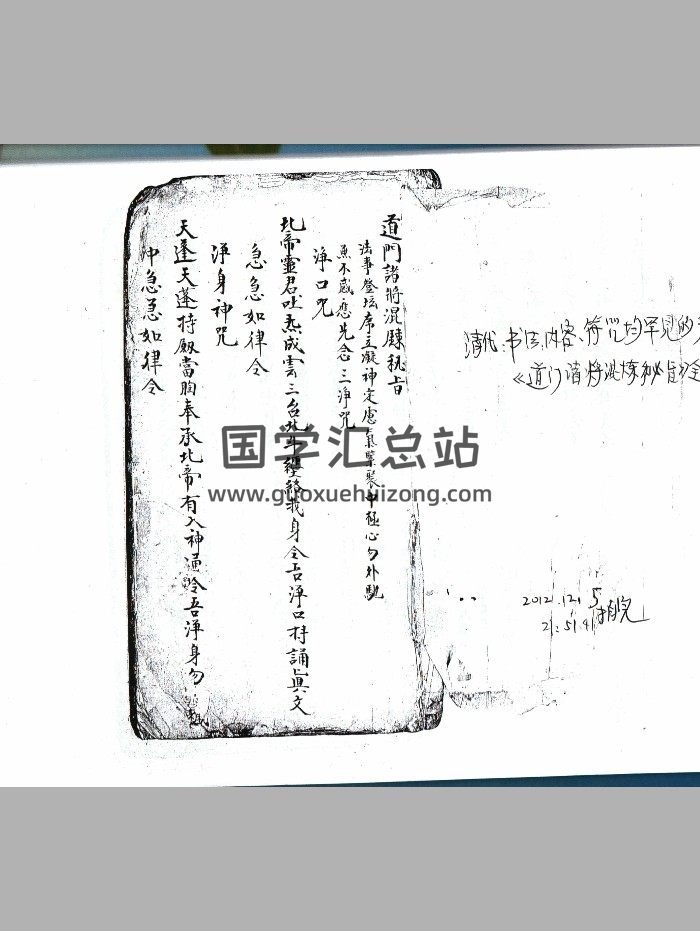 道門諸將混驗秘旨
法事登坛席立凝神定慮氣聚中極心勿外馳
無不感應先念三淨咒
淨口咒
北帝靈君吐炁成雲三台北斗纏絡我身令吾淨口持誦眞文
急急如律令
淨身神咒
天蓬天蓬持殿當胸奉承北帝有入神通令吾淨身勿
冲急急如律令
清代.书法、内容、符咒均罕见的
《道门诸将混炼秘旨》全
2012.12.5
21:51.41
国学汇总站
www.guoxuehuizong.com